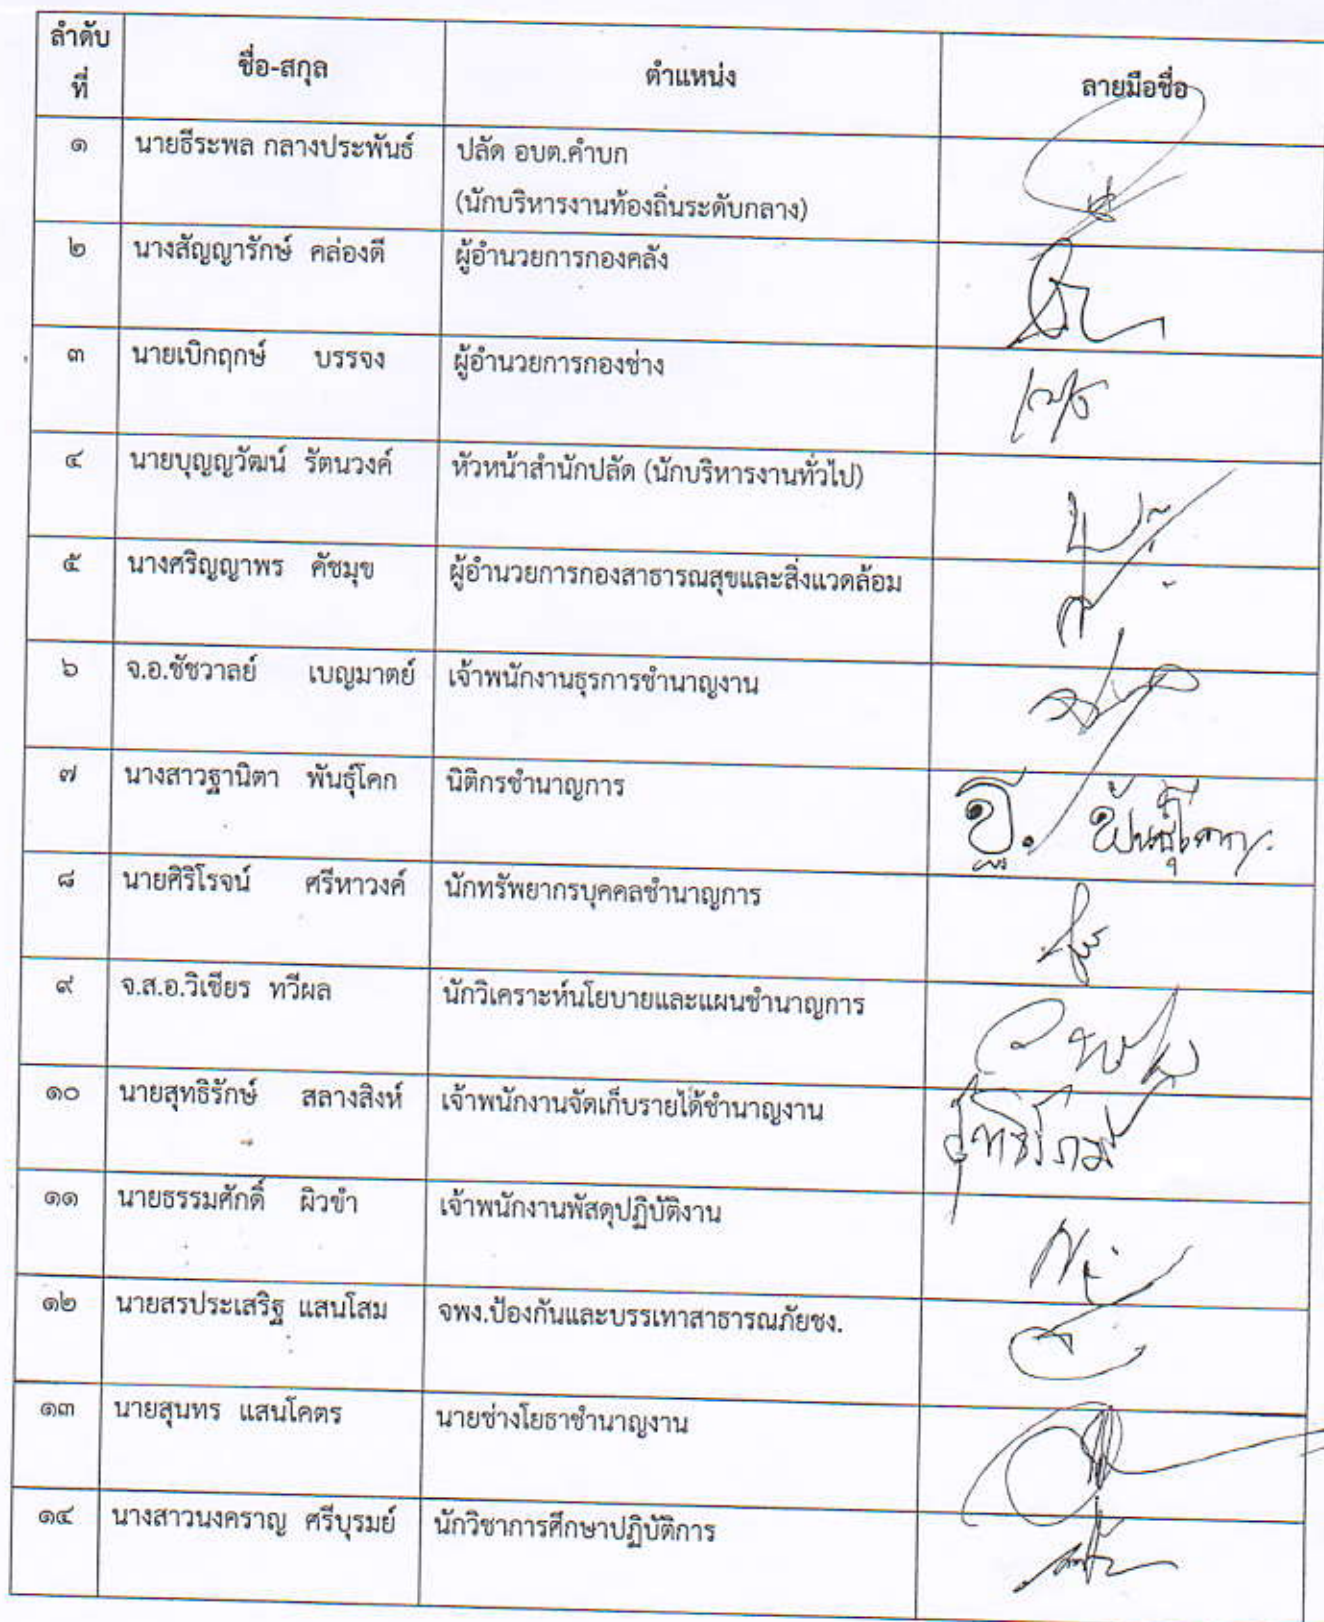 ลำดับ
ที่
ชื่อ-สกุล
ตำแหน่ง
ลายมือชื่อ
๑ นายธีระพล กลางประพันธ์ ปลัด อบต.คำบก
(นักบริหารงานท้องถิ่นระดับกลาง)
๒ นางสัญญารักษ์ คล่องดี ผู้อำนวยการกองคลัง
๓ นายเบิกฤกษ์ บรรจง ผู้อำนวยการกองช่าง
๔ นายบุญญวัฒน์ รัตนวงค์ หัวหน้าสำนักปลัด (นักบริหารงานทั่วไป)
๕ นางศริญญาพร คัชมุข ผู้อำนวยการกองสาธารณสุขและสิ่งแวดล้อม
๖ จ.อ.ชัชวาลย์ เบญมาตย์ เจ้าพนักงานธุรการชำนาญงาน
๗ นางสาวฐานิตา พันธุ์โคก นิติกรชำนาญการ
๘ นายศิริโรจน์ ศรีหาวงค์ นักทรัพยากรบุคคลชำนาญการ
๙ จ.ส.อ.วิเชียร ทวีผล นักวิเคราะห์นโยบายและแผนชำนาญการ
๑๐ นายสุทธิรักษ์ สลางสิงห์ เจ้าพนักงานจัดเก็บรายได้ชำนาญงาน
๑๑ นายธรรมศักดิ์ ผิวขำ เจ้าพนักงานพัสดุปฏิบัติงาน
๑๒ นายสรประเสริฐ แสนโสม จพง.ป้องกันและบรรเทาสาธารณภัยชง.
๑๓ นายสุนทร แสนโคตร นายช่างโยธาชำนาญงาน
๑๔ นางสาวนงคราญ ศรีบุรมย์ นักวิชาการศึกษาปฏิบัติการ